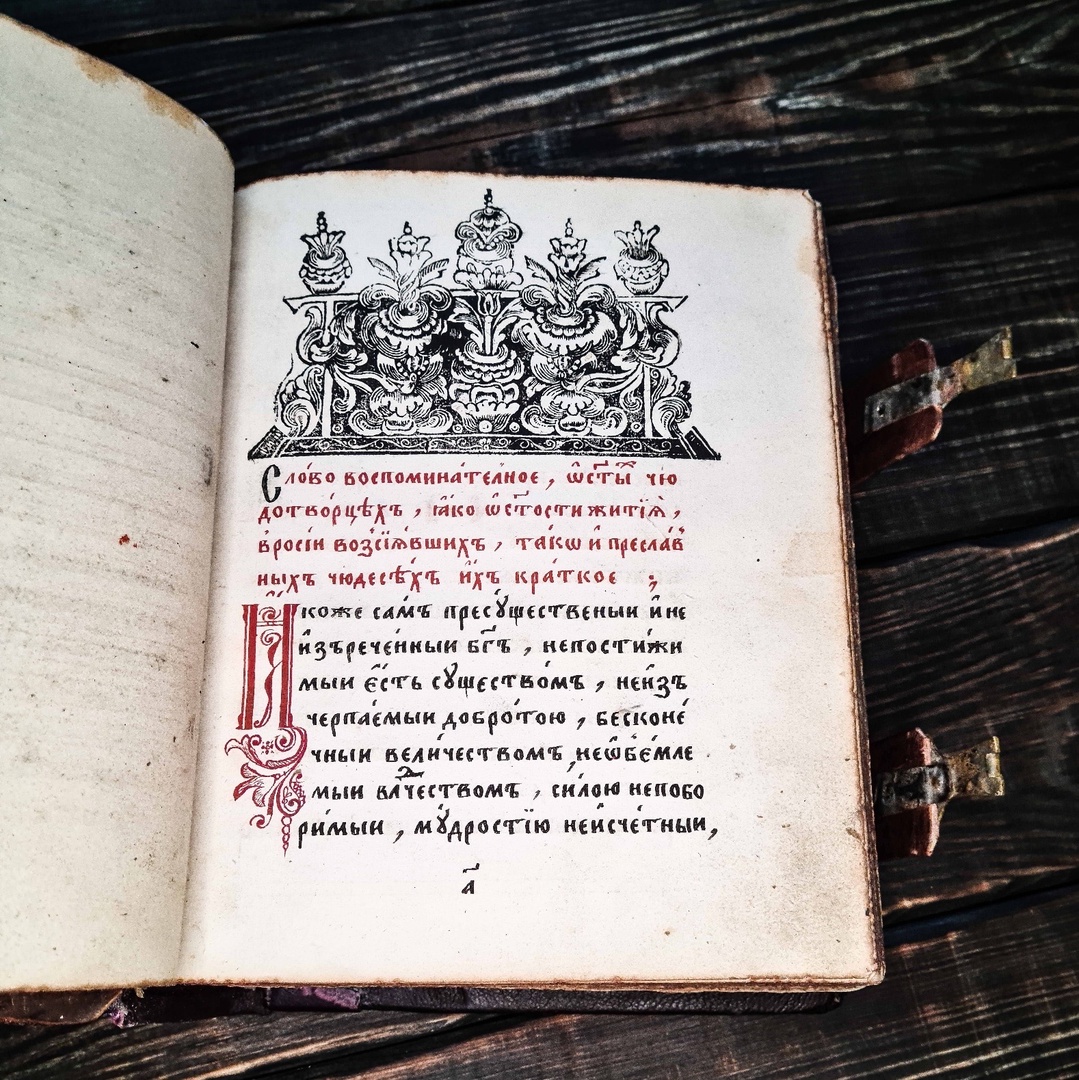 Сло́во воспомина́телное , ѡ҆ст҃ы́х чю
дотво́рцѣхъ , ꙗ҆́ко ѡ҆ст҃ости житїѧ̀ ,
вросі́и возсїѧ́вшихъ , та́кѡ и҆ пресла́в
ныхъ чюдесѣ́хъ и҆́хъ кра́ткое ;
Ꙗ҆́коже са́мъ пресꙋ́щественыи и҆ не
и҆зърече́нныи бг҃ъ , непостижи́
мыи є҆́сть сꙋщество́мъ , неи҆зъ
черпа́емыи добро́тою , бесконе́
чныи вели́чествомъ , неѡ҆б̾е́мле
мыи влⷣчествомъ , си́лою непобо
ри́мыи , мꙋ́дростїю неи҆сче́тныи ,
а҃